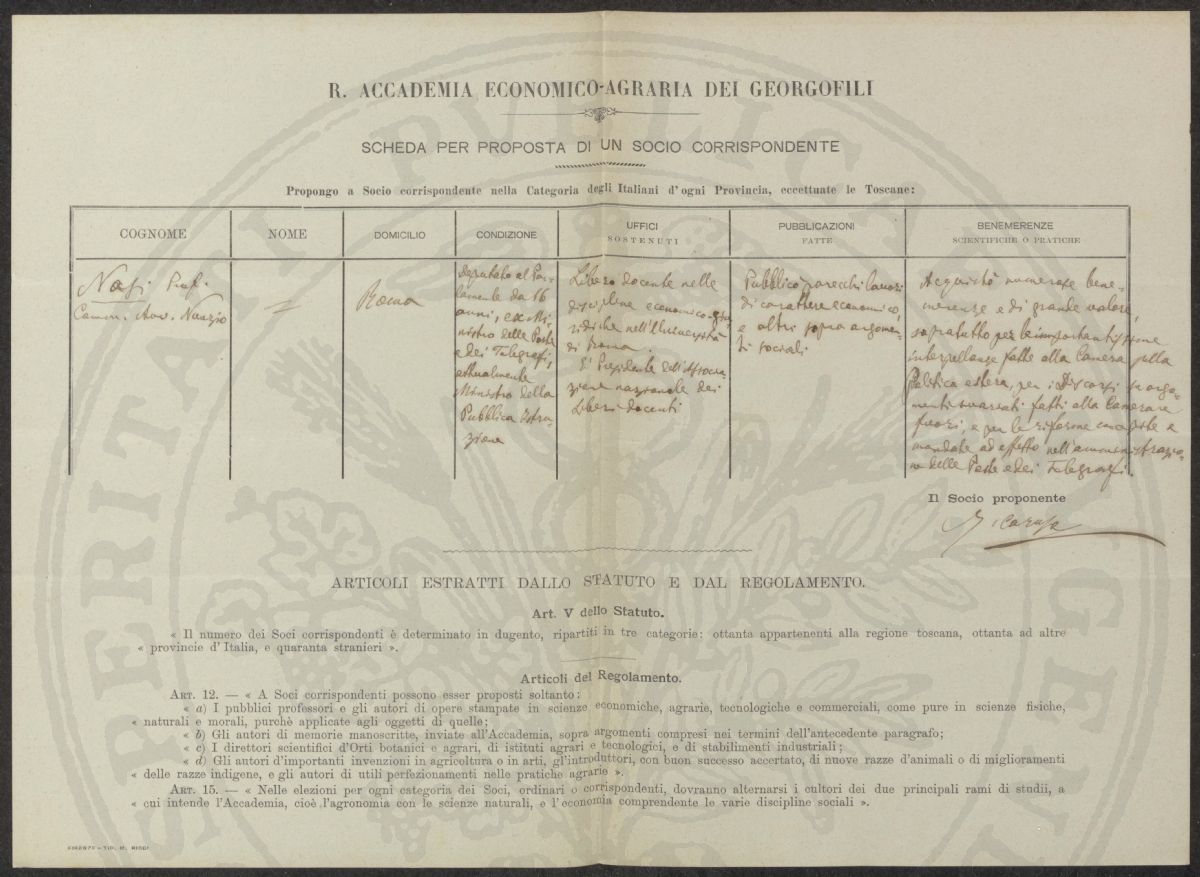 R. ACCADEMIA ECONOMICO-AGRARIA DEI GEORGOFILI
SCHEDA PER PROPOSTA DI UN SOCIO CORRISPONDENTE
Propongo a Socio corrispondente nella Categoria degli Italiani d'ogni Provincia, eccettuate le Toscane:
COGNOME
NOME
DOMICILIO
CONDIZIONE
UFFICI
SOSTENUTI
PUBBLICAZIONI
FATTE
BENEMERENZE
SCIENTIFICHE O PRATICHE
Nasi Prof.
Comm. Avv. Nunzio
Roma
Deputato al Par-
lamento da 16
anni, ex Mi-
nistro delle Poste
e dei Telegrafi,
attualmente
Ministro della
Pubblica Istru-
zione
Libero docente nelle
discipline economico-giu-
ridiche nell'Università
di Roma.
E' Presidente dell'Associa-
zione nazionale dei
Liberi docenti
Pubblicò parecchi lavori
di carattere economico,
e altri sopra argomen-
ti sociali
Acquistò numerose bene-
merenze e di grande valore,
sopratutto per le importantissime
interpellanze fatte alla Camera sulla
Politica estera, per i Discorsi su argo-
menti svariati fatti alla Camera e
fuori, e per le riforme e
mandate ad effetto nell'amministrazio-
ne delle Poste e dei Telegrafi.
Il Socio proponente
Caruso
ARTICOLI ESTRATTI DALLO STATUTO E DAL REGOLAMENTO.
Art. V dello Statuto.
« Il numero dei Soci corrispondenti è determinato in dugento, ripartiti in tre categorie: ottanta appartenenti alla regione toscana, ottanta ad altre
« provincie d'Italia, e quaranta stranieri ».
Articoli del Regolamento.
ART. 12. — « A Soci corrispondenti possono esser proposti soltanto:
« a) I pubblici professori e gli autori di opere stampate in scienze economiche, agrarie, tecnologiche e commerciali, come pure in scienze fisiche,
« naturali e morali, purchè applicate agli oggetti di quelle;
« b) Gli autori di memorie manoscritte, inviate all'Accademia, sopra argomenti compresi nei termini dell'antecedente paragrafo;
« c) I direttori scientifici d'Orti botanici e agrari, di istituti agrari e tecnologici, e di stabilimenti industriali;
« d) Gli autori d'importanti invenzioni in agricoltura o in arti, gl'introduttori, con buon successo accertato, di nuove razze d'animali o di miglioramenti
« delle razze indigene, e gli autori di utili perfezionamenti nelle pratiche agrarie ».
ART. 15. — « Nelle elezioni per ogni categoria dei Soci, ordinari o corrispondenti, dovranno alternarsi i cultori dei due principali rami di studii, a
« cui intende l'Accademia, cioè l'agronomia con le scienze naturali, e l'economia comprendente le varie discipline sociali ».
FIRENZE - TIP. M. RICCI